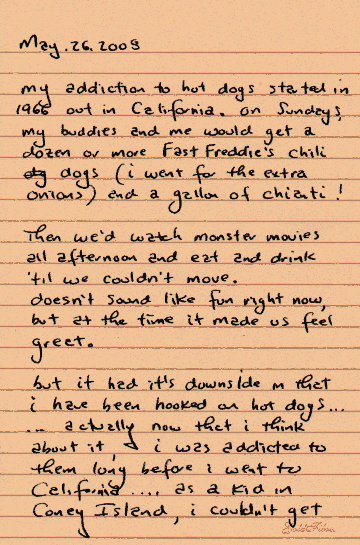 May.26.2009
my addiction to hot dogs started in
1966 out in California. on Sundays,
my buddies and me would get a
dozen or more Fast Freddie's chili
dogs (i went for the extra
onions) and a gallon of chianti!
Then we'd watch monster movies
all afternoon and eat and drink
'til we couldn't move.
doesn't sound like fun right now,
but at the time it made us feel
great.
but it had it's downside in that
i have been hooked on hot dogs...
... actually now that i think
about it, i was addicted to
them long before i went to
California .... as a kid in
Coney Island, i couldn't get